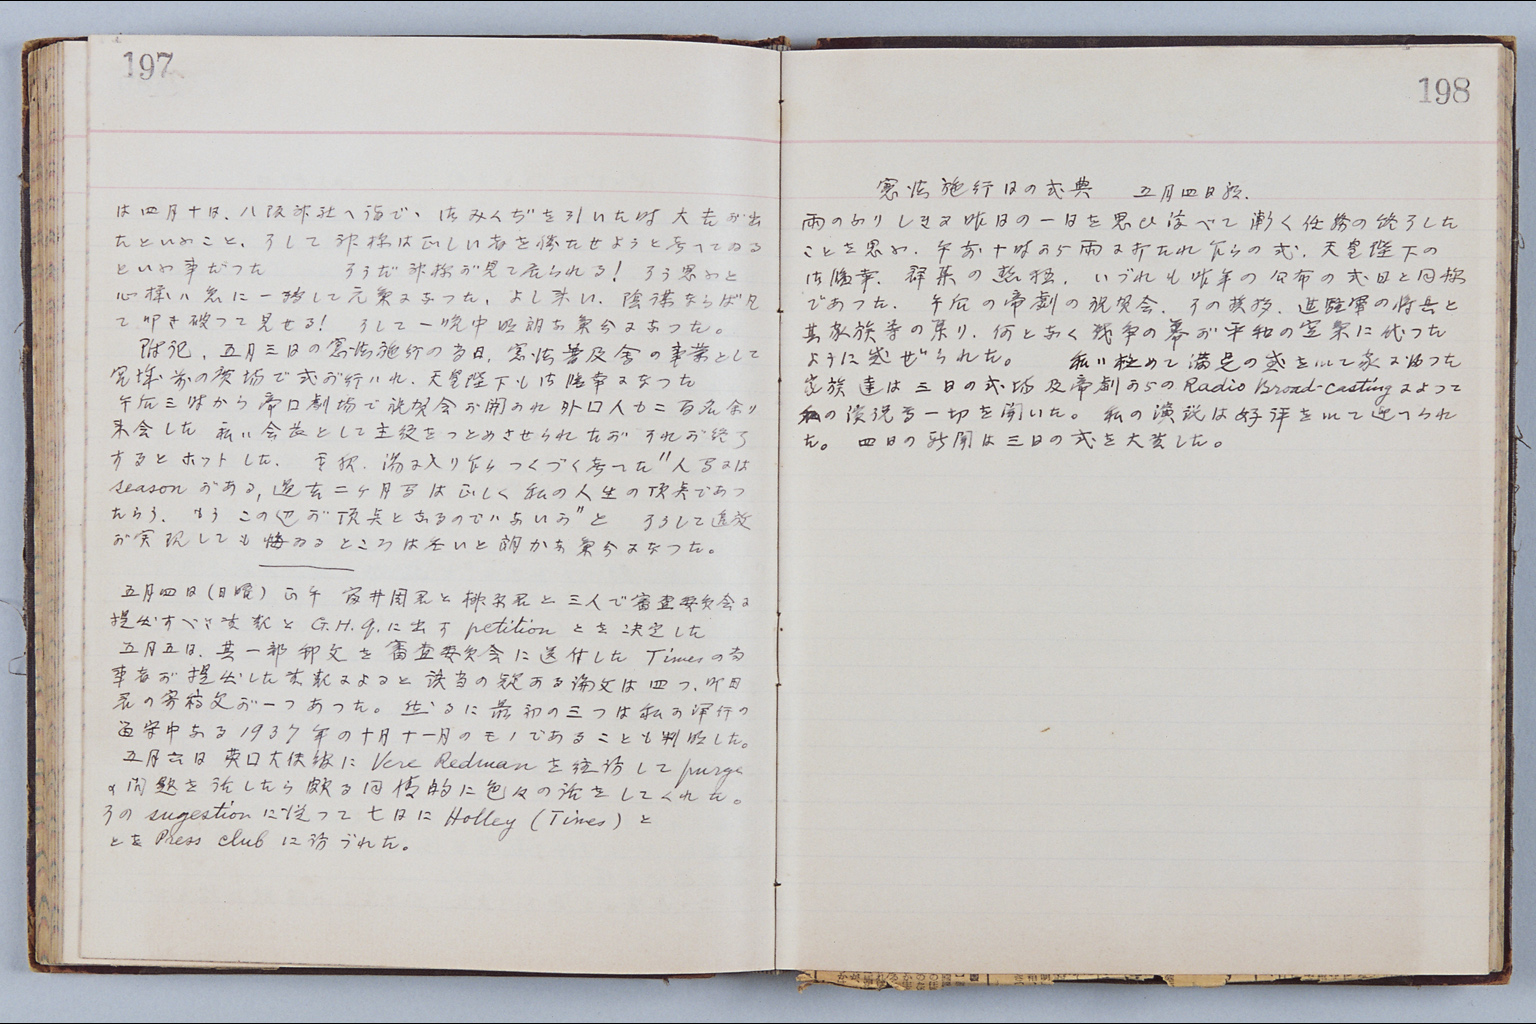 197
は四月十日、八阪神社へ詣で、おみくぢを引いた時 大吉が出
たといふこと、そして神様は正しい者を勝たせようと考へてゐる
といふ事だつた そうだ神様が見て居られる! そう思ふと
心様に一転して元気になつた、よし来い、陰謀ならば凡
て叩き破つて見せる! そして一晩中明朗な気分であつた。
附記、五月三日の憲法施行の当日、憲法普及会の事業として
宮城前の広場で式が行はれ、天皇陛下も御臨幸になつた
午后三時から帝国劇場で祝賀会が開かれ外国人も二百名余り
来会した 私は会長として主役をつとめさせられたが それが終了
するとホットした。 其夜、湯に入り乍らつくづく考へた"人写には
season がある, 過去二ヶ月写は正しく私の人生の頂点であつ
たらう、もうこの辺が頂点となるのではないか"と そうして追放
が実現しても悔ゐるところは無いと朗かな気分になつた。
五月四日(日曜) 正午 と三人で審査委員会に
提出すべき資料と G.H.q.に出す petition とを決定した
五月五日、其一部邦文を審査委員会に送付した Timesの当
事者が提出した資料によると該当の疑ある論文は四つ、昨日
の寄稿文が一つあつた。然るに最初の三つは私が洋行の
途中である1937年の十月十一月のモノであることも判明した。
五月六日 英国大使館に Vere Redman を往訪して purge
の問題を話したら頗る同情的に色々の話をしてくれた。
その sugestion に従つて七日に Holley (Times) と
とを Press club に訪づれた。
198
憲法施行日の式典 五月四日誌、
雨のふりしきる昨日の一日を思ひ浮べて漸く任務の終了した
ことを思ふ、午前十時から雨にうたれ乍らの式、天皇陛下の
御臨幸、群集の熱狂、いづれも昨年の公布の式日と同様
であつた、午后の帝劇の祝賀会、その挨拶、進駐軍の将兵と
其家族等の集り、何となく戦争の幕が平和の空気に代つた
ように感ぜられた。 私は極めて満足の感を以て家に帰つた
家族達は三日の式場及帝劇からの Radio Broad-casting によつて
私の演説等一切を聞いた。私の演説は好評を以て迎へられ
た。四日の新聞は三日の式を大書した。